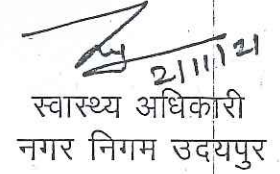 2/11/21
स्वास्थ्य अधिकारी
नगर निगम उदयपुर